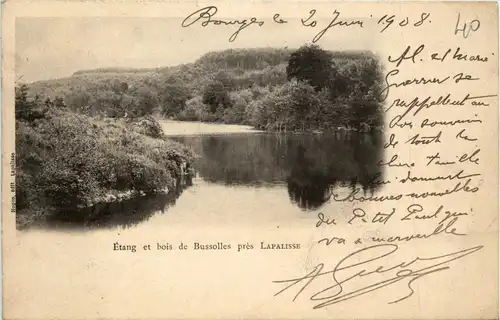 Bourges le 20 Juin 1908.
40
M. et Mme
Guerrier se
rappellent au
bon souvenir
de toute la
chère famille
et donnent
bonnes nouvelles
du Petit Paul qui
va à merveille
Étang et bois de Bussolles près LAPALISSE
édit. Lapalisse